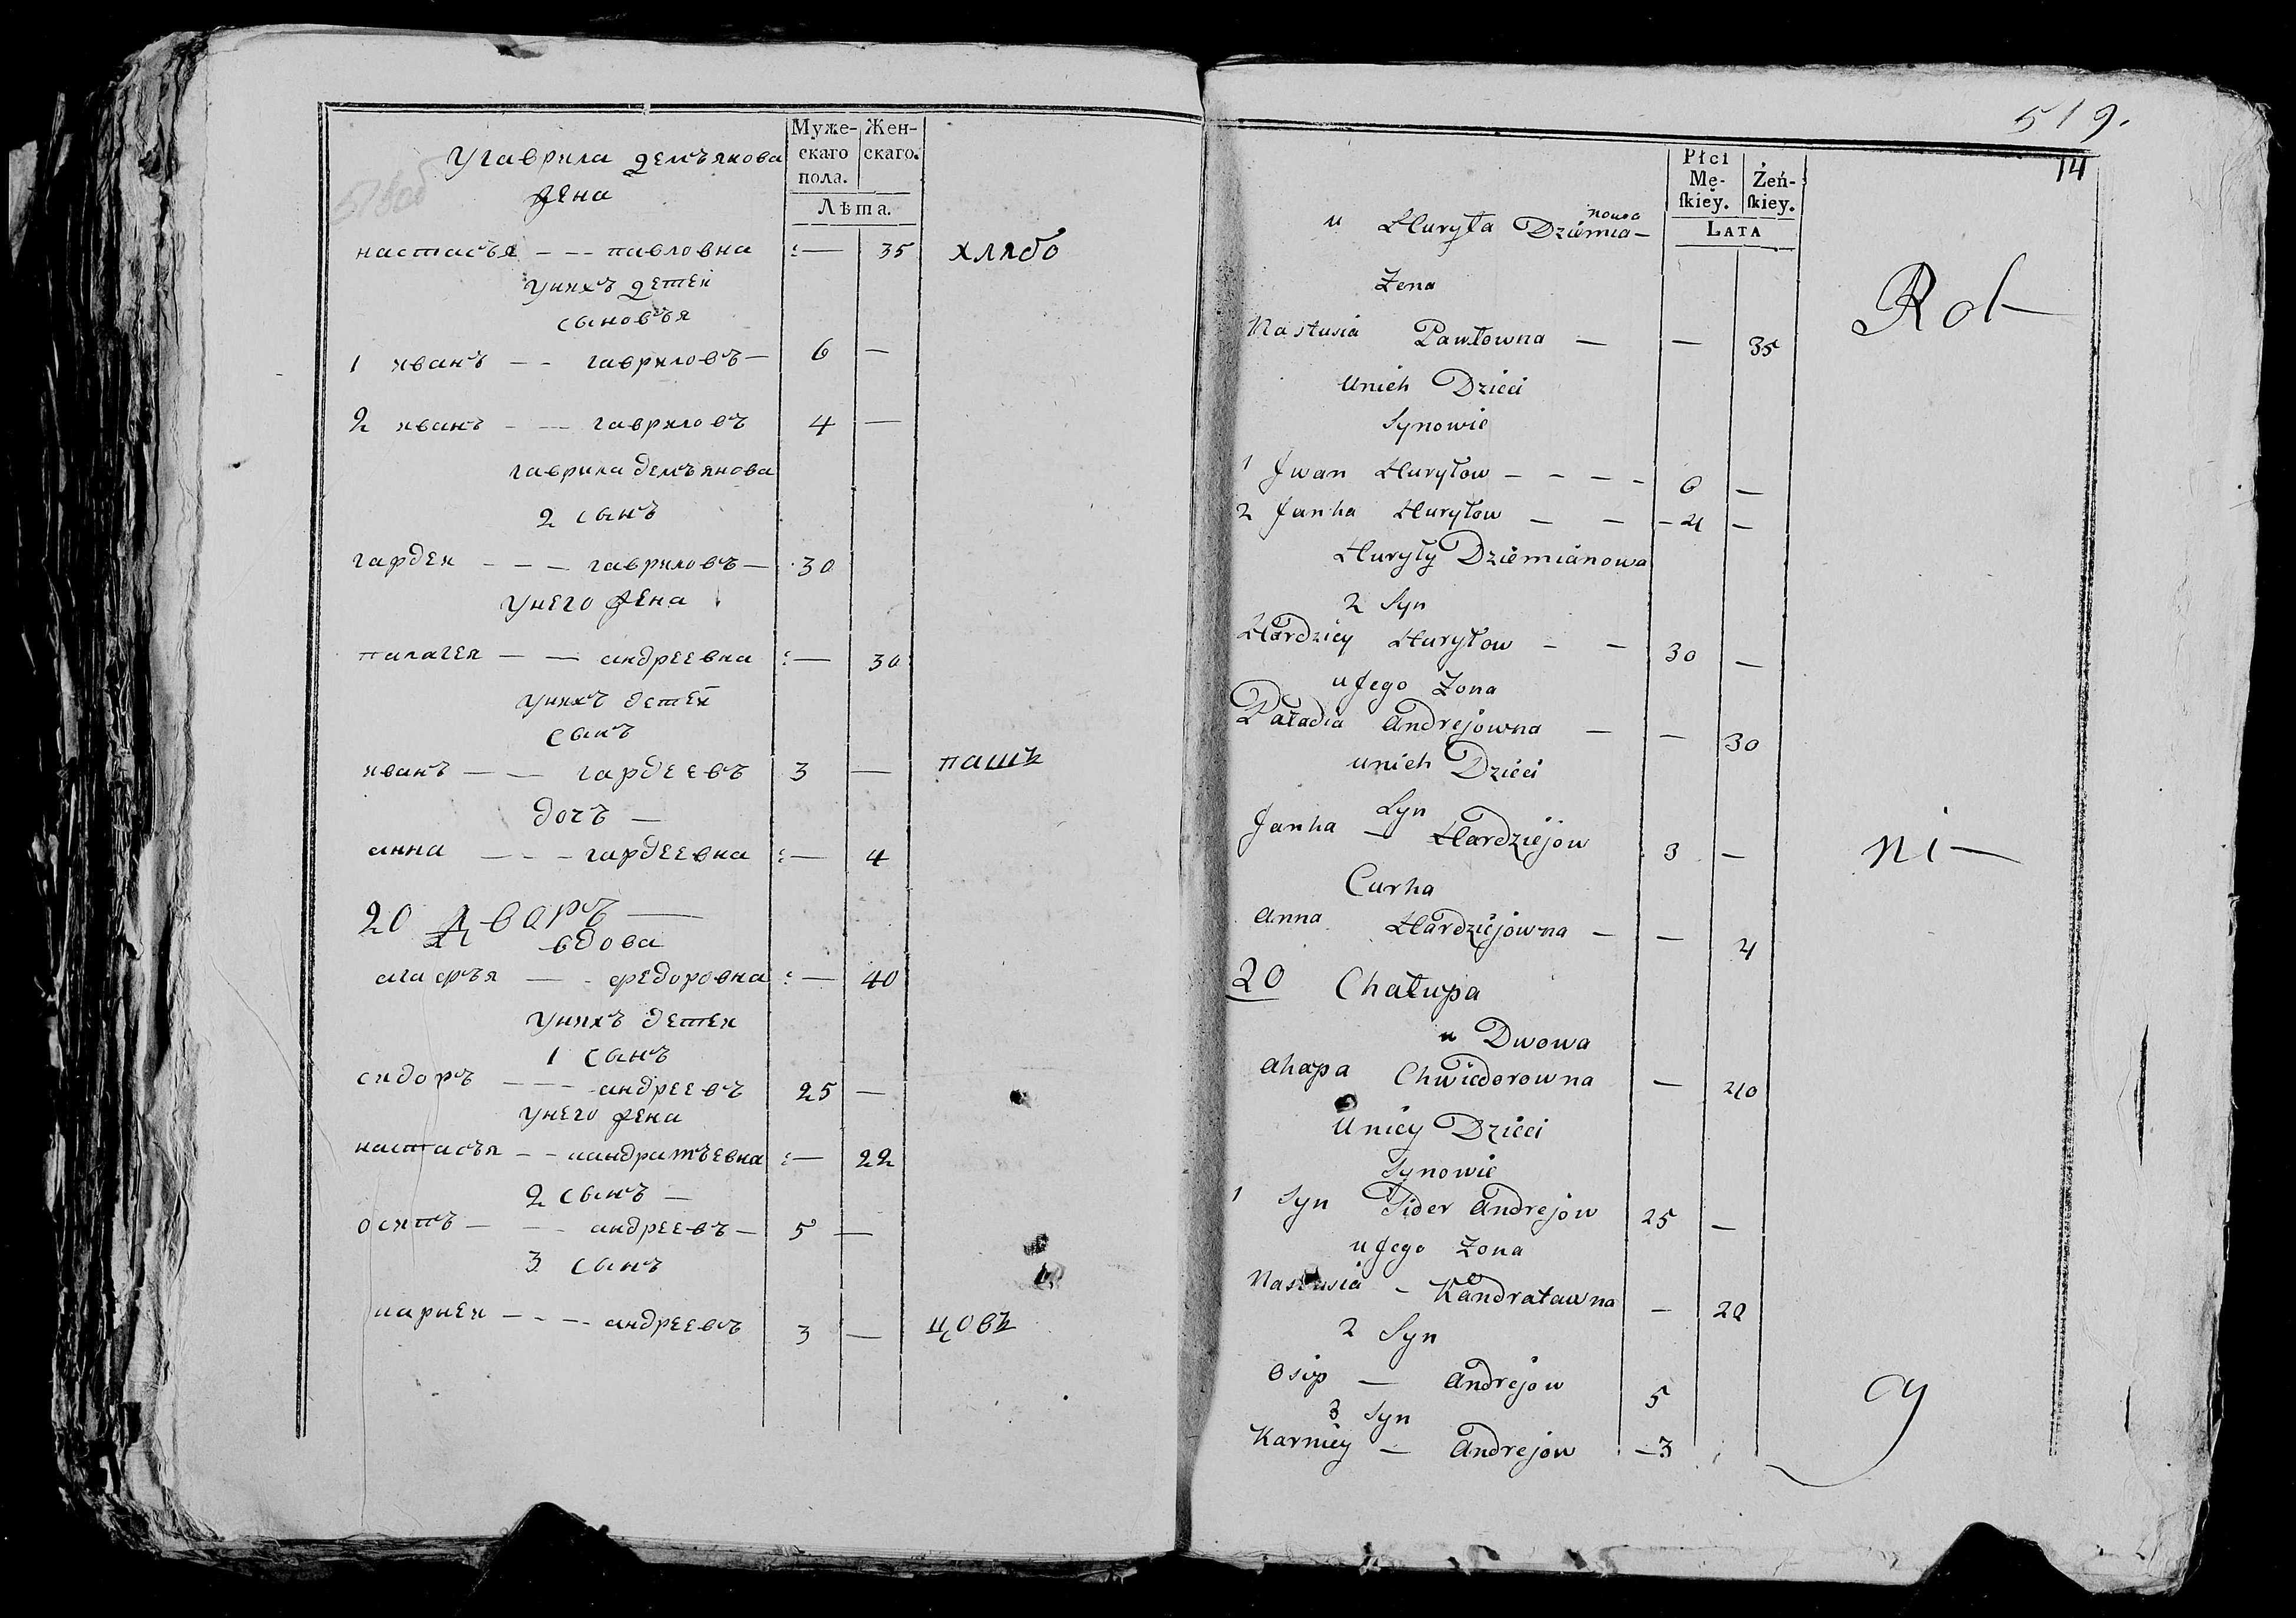 Муже-
скаго
пола.
Жен-
скаго.
Лѣта.
У гаврила демъянова
жена
настасъя - - - павловна — 35 хлябо
унихъ детей
сыновъя
1 иванъ - - гавриловъ — 6 —
2 иванъ - - - гавриловъ 4 —
гаврила демъянова
2 сынъ
гардей - - - гавриловъ — 30
унего жена
палагея — — андреевна — 30
унихъ детей
сынъ
иванъ — — гардеевъ 3 — пашъ
дочъ —
анна - - - гардеевна — 4
20 дворъ —
вдова
агафъя — - федоровна — 40
унихъ детей
1 сынъ
сидоръ - - - андреевъ 25 —
унего жена
настасъя - - кандратъевна — 22
2 сынъ —
осипъ — - - андреевъ — 5 —
3 сынъ
карней - - - андреевъ 3 — цовъ
519.
14
Płci
Mę-
ſkiey.
Żeń-
ſkiey.
LATA
u Huryła Dziemia-
nowa
Zena
Rol—
Nastusia Pawłowna — — 35
Unich Dzieci
Synowie
1 Jwan Huryłow - - - - 6 —
2 Janka Huryłow — — - 4 —
Huryły Dziemianowa
2 Syn
Hardziey Huryłow - - 30 —
u Jego Zona
Paładia Andrejowna — — 30
unich Dzieci
Syn
Janka — Hardziejow 3 — ni—
Curka
Anna Hardziejowna — — 4
20 Chałupa
u Dwowa
Ahapa Chwiedorowna — 40
Unicy Dzieci
Synowie
1 Syn Sider Andrejow 25 —
u Jego Zona
Nastusia - Kandratawna — 22
2 Syn
Osip — Andrejow 5
3 Syn
Karniey — Andrejow — 3
y